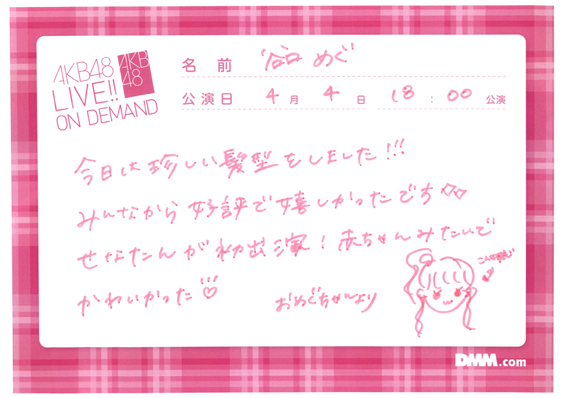 AKB48
LIVE!!
ON DEMAND
AKB
48
名前 谷口 めぐ
公演日 4月 4日 18:00 公演
今日は珍しい髪型をしました!!!
みんなから好評で嬉しかったです
せなたんが初出演!赤ちゃんみたいで
かわいかった!!!♡
おめぐちゃんより
DMM.com